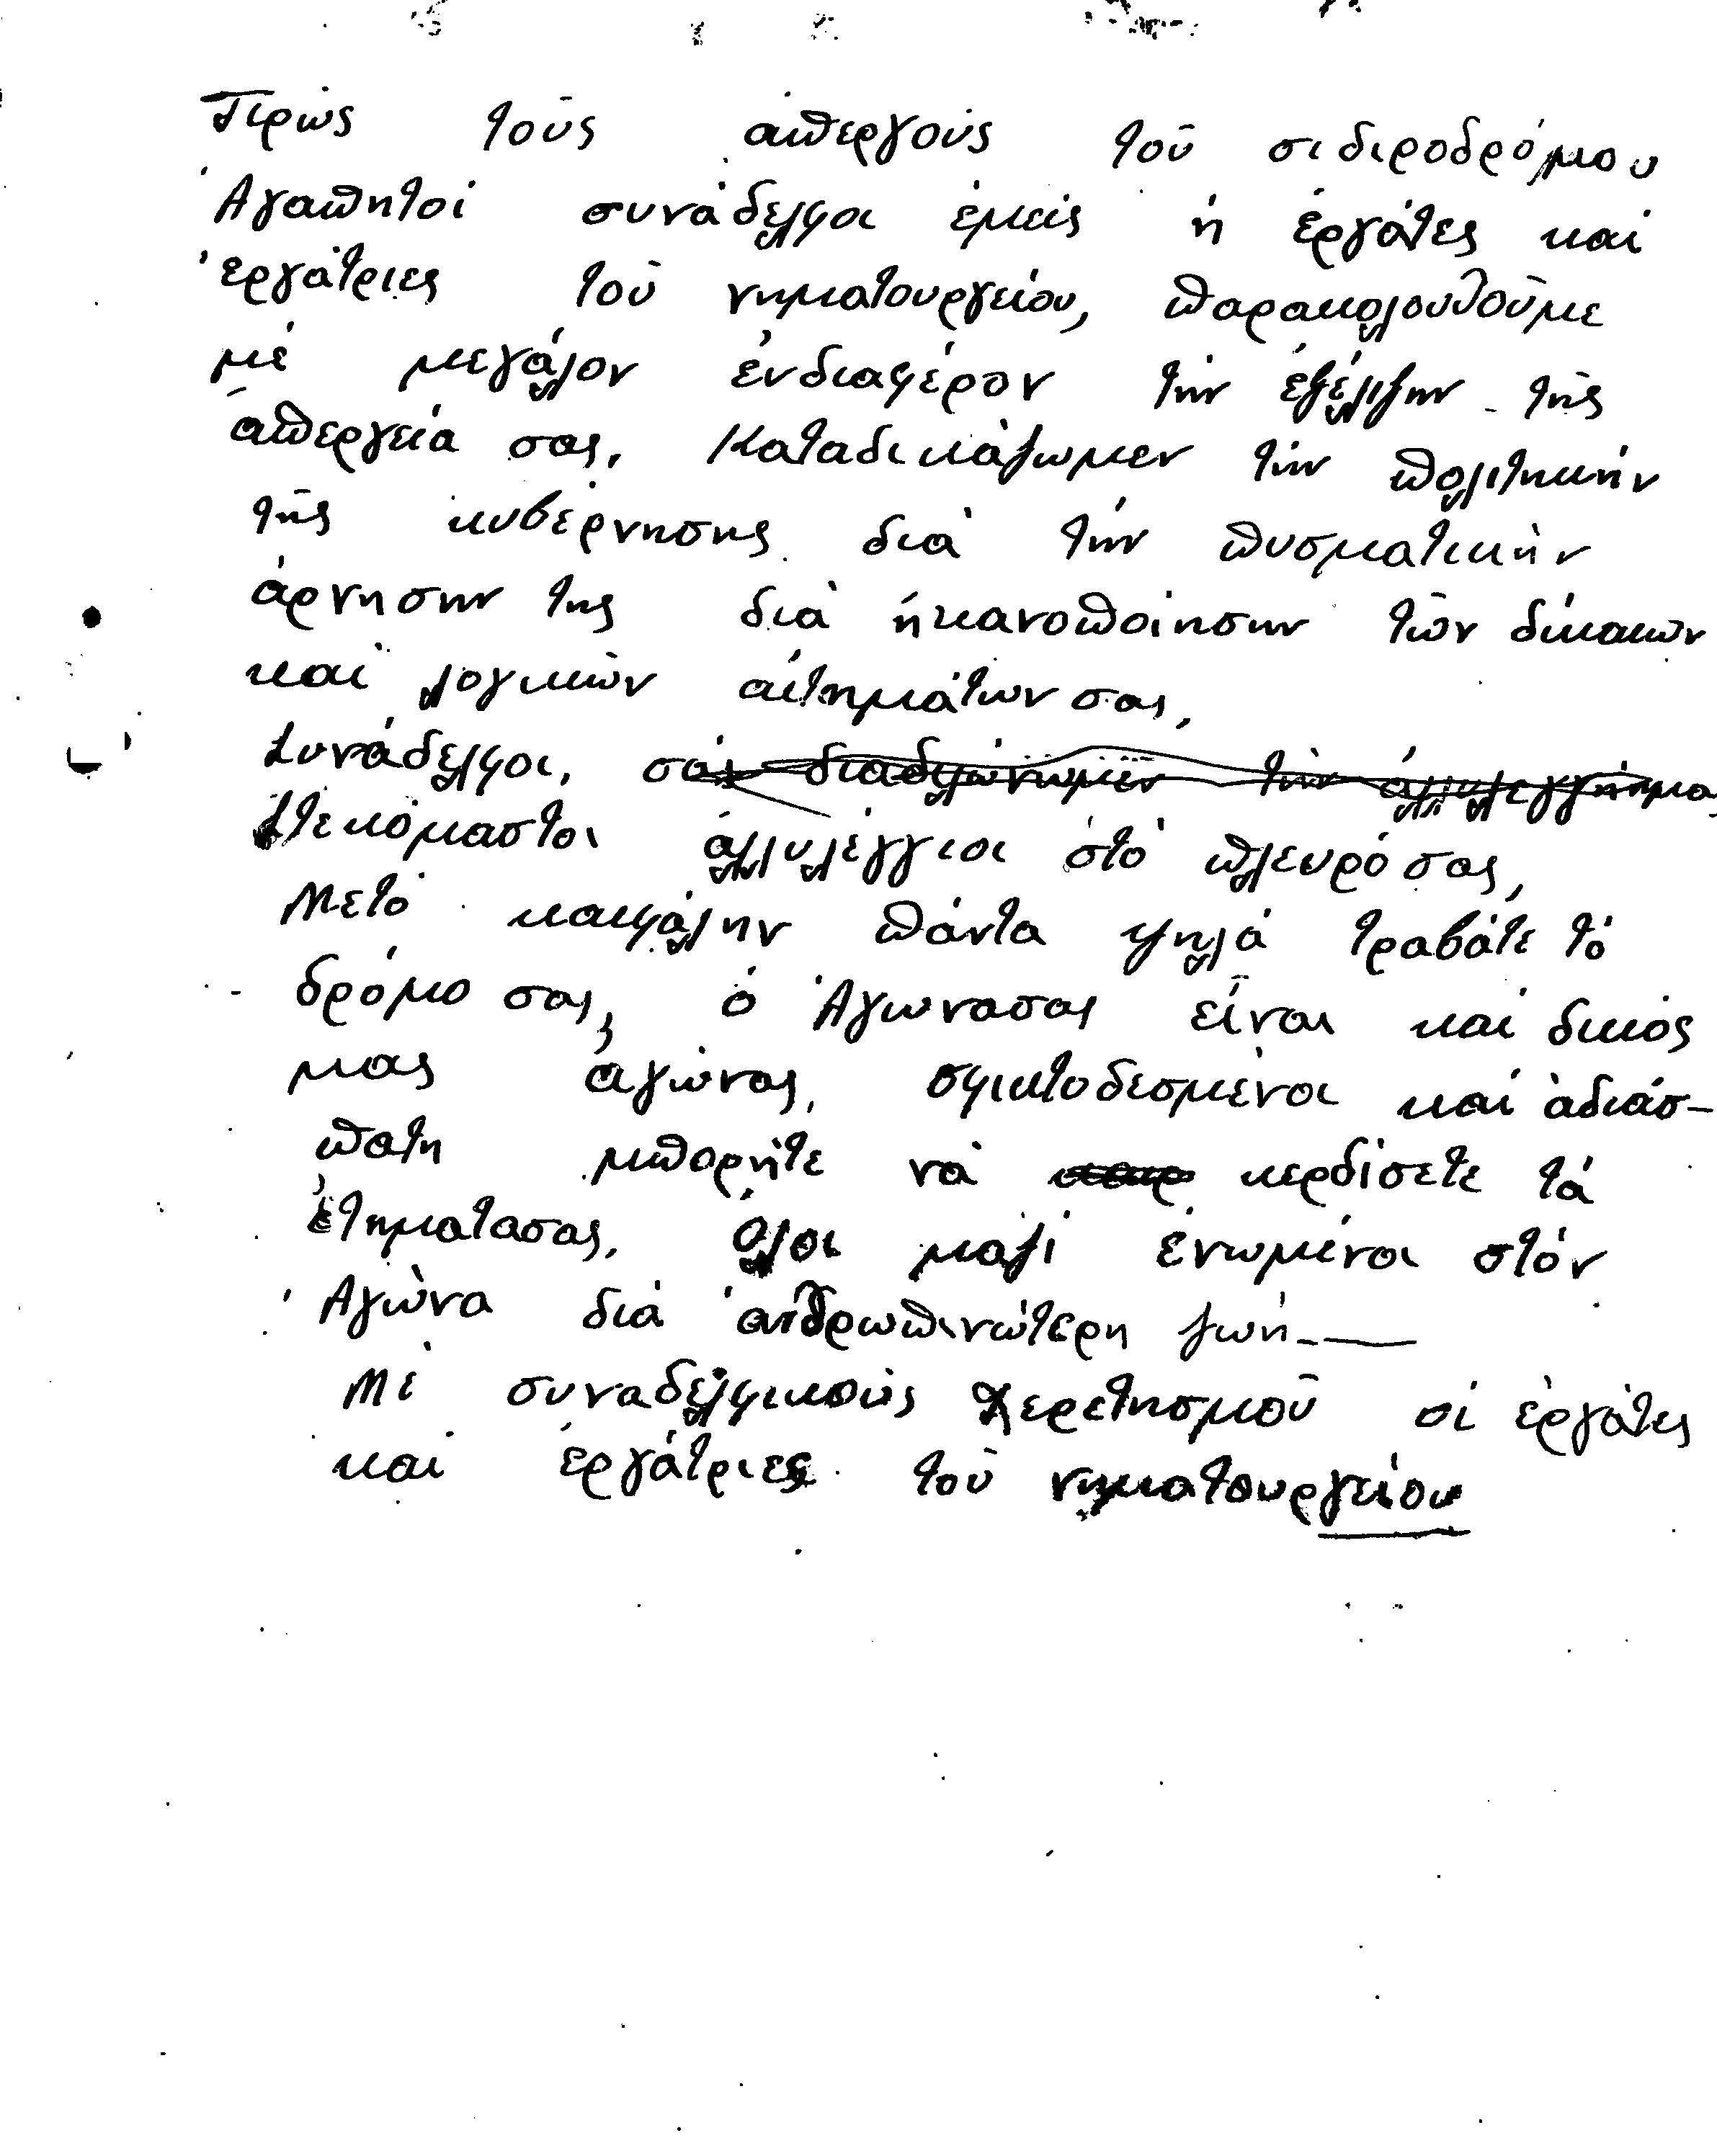 Πρώς τούς απεργούς τοῦ σιδιροδρόμου
Ἀγαπητοί συνάδελφοι ἐμείς ή ἐργάτες καί
ἐργάτριες τοῦ νηματουργείου, παρακολουθοῦμε
μέ μεγάλον ἐνδιαφέρον τήν ἐξέλιξην τῆς
ἀπεργεία σας, Καταδικάζωμεν τήν πολιτηκήν
τῆς κυβέρνησης διά τήν πυσματικήν
άρνησην της διά ήκανοποίησην τῶν δίκαιων
καί λογικῶν αἰτημάτων σας,
Συνάδελφοι, σάς διαδηλώνωμεν τήν άλλυλεγγήημας
Στεκόμαστοι άλλυλέγγιοι στό πλευρό σας,
Μετό καιφάλην πάντα ψηλά τραβάτε τό
δρόμο σας, ό Ἀγωνασας εἶναι καί δικός
μας άγώνας, σφικτοδεσμένοι καί ἀδιάσ-
πατη μπορήτε νά κερδίσετε τά
ἐτηματασας, όλοι μαζί ἐνωμένοι στόν
Ἀγώνα διά ἀνθρωπινώτερη ζωή-—
Μέ συναδελφικούς χερετησμοῦ οἱ ἐργάτες
καί ἐργάτριες τοῦ νηματουργείου